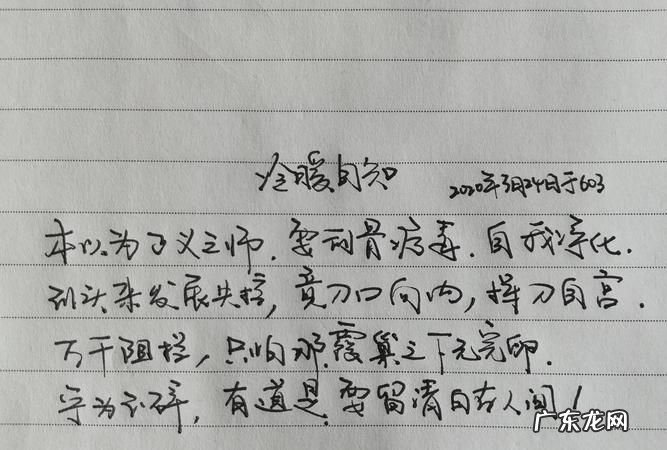 冷暖自知
2020年3月24日于603
本以为正义之师.要刮骨病毒.自我净化.
到头来发展失控,竟刀口向内,挥刀自宫.
万千阻拦,只怕那.霞巢之下无完卵.
宁为玉碎,有道是.要留清白在人间!
广东龙网